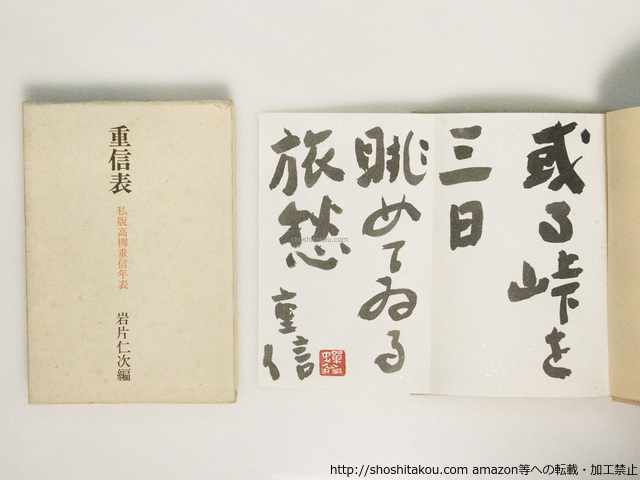 重信表
私版高柳重信年表
岩片仁次編
或る峠を
三日
眺めてゐる
旅愁
重信
shoshitakou.com
http://shoshitakou.com amazon等への転載・加工禁止